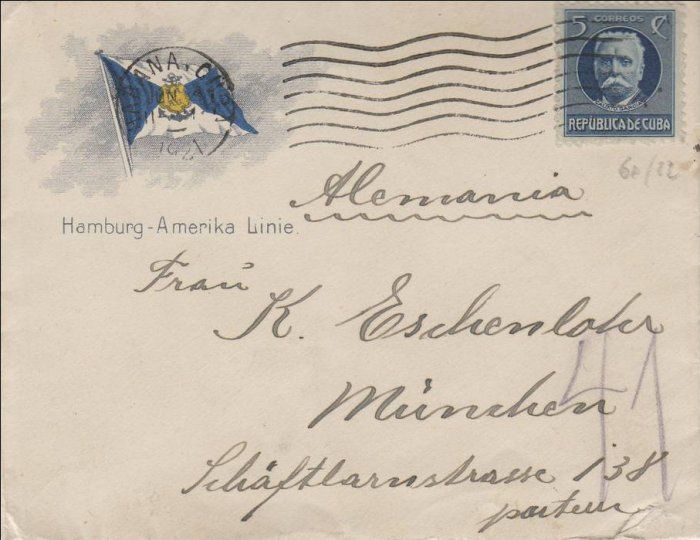 5 CORREOS ¢
REPÚBLICA DE CUBA
HABANA, CUBA
1921
Hamburg-Amerika Linie.
Alemania
Frau
K. Eschenlohr
München
Schäftlarnstrasse 138
parterre
41